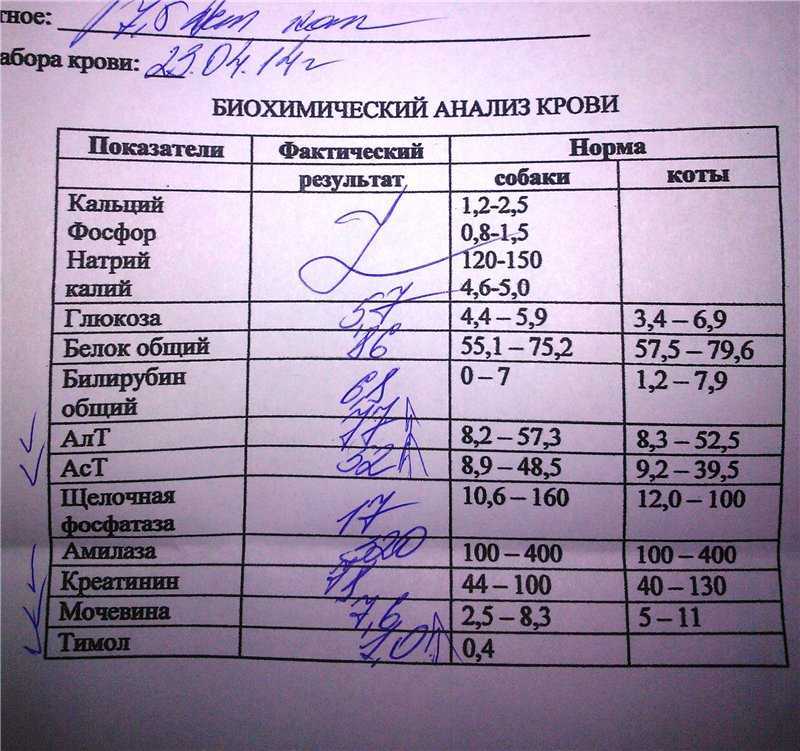 тное: 17,5 лет кот
абора крови: 23.04.14г
БИОХИМИЧЕСКИЙ АНАЛИЗ КРОВИ
Показатели Фактический Норма
результат собаки коты
Кальций 1,2-2,5
Фосфор 0,8-1,5
Натрий 120-150
калий 4,6-5,0
Глюкоза 5,7 4,4 – 5,9 3,4 – 6,9
Белок общий 86 55,1 – 75,2 57,5 – 79,6
Билирубин 0 – 7 1,2 – 7,9
общий 6,8
АлТ 77 8,2 – 57,3 8,3 – 52,5
АсТ 52 8,9 – 48,5 9,2 – 39,5
Щелочная 10,6 – 160 12,0 – 100
фосфатаза 17
Амилаза 320 100 – 400 100 – 400
Креатинин 78 44 – 100 40 – 130
Мочевина 7,6 2,5 – 8,3 5 – 11
Тимол 1,0 0,4